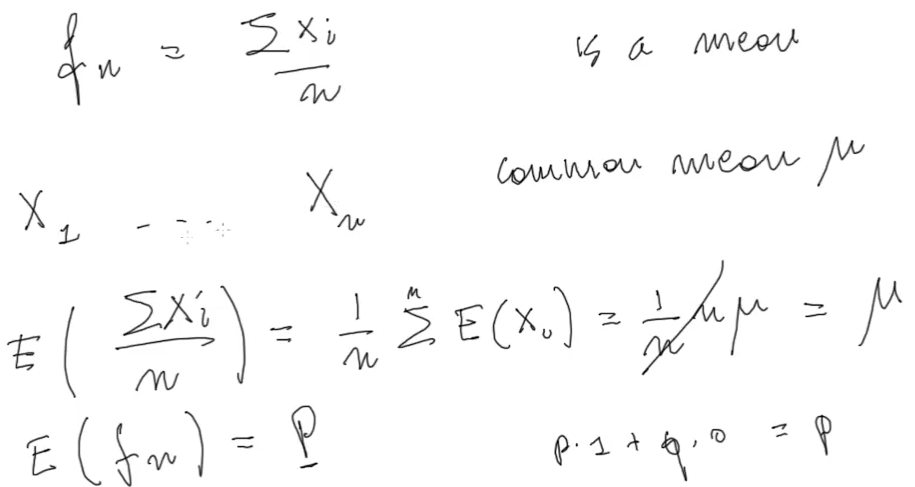 fn = ΣXi / n is a mean
common mean μ
X1 - - - - Xn
E(ΣXi / n) = 1/n Σ^n E(Xi) = 1/n nμ = μ
E(fn) = P p·1 + q·0 = p